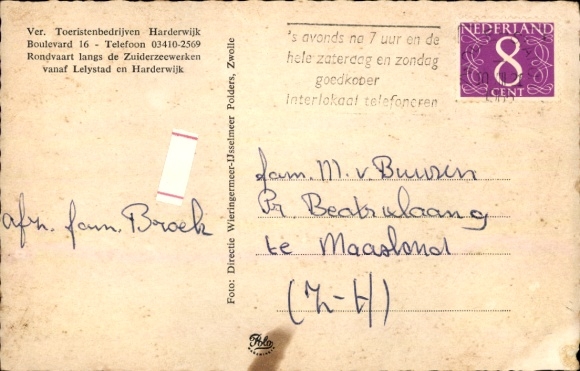 Ver. Toeristenbedrijven Harderwijk
Boulevard 16 - Telefoon 03410-2569
Rondvaart langs de Zuiderzeewerken
vanaf Lelystad en Harderwijk
's avonds na 7 uur en de
hele zaterdag en zondag
goedkoper
interlokaal telefoneren
NEDERLAND
8
CENT
Foto: Directie Wieringermeer-IJsselmeer Polders, Zwolle
afz. fam. Broek
fam. M. v. Buuren
Pr Beatrixlaang
te Maasland
(Z-H)